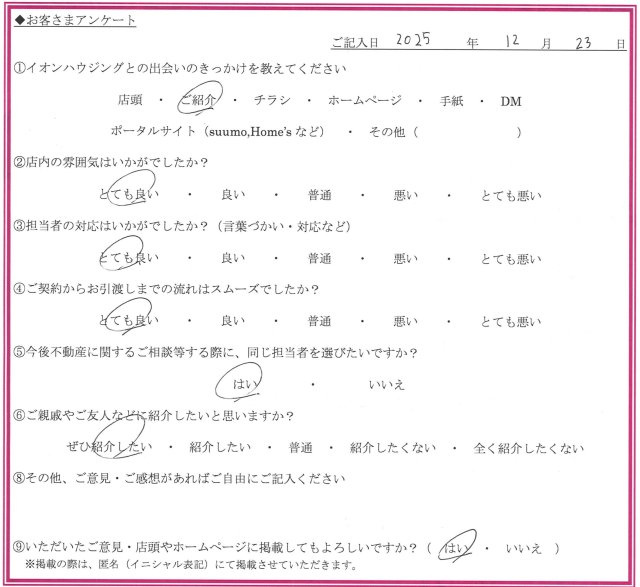 ◆お客さまアンケート
ご記入日 2025 年 12 月 23 日
①イオンハウジングとの出会いのきっかけを教えてください
店頭 ・ ご紹介 ・ チラシ ・ ホームページ ・ 手紙 ・ DM
ポータルサイト（suumo,Home's など） ・ その他（ ）
②店内の雰囲気はいかがでしたか？
とても良い ・ 良い ・ 普通 ・ 悪い ・ とても悪い
③担当者の対応はいかがでしたか？（言葉づかい・対応など）
とても良い ・ 良い ・ 普通 ・ 悪い ・ とても悪い
④ご契約からお引渡しまでの流れはスムーズでしたか？
とても良い ・ 良い ・ 普通 ・ 悪い ・ とても悪い
⑤今後不動産に関するご相談等する際に、同じ担当者を選びたいですか？
はい ・ いいえ
⑥ご親戚やご友人などに紹介したいと思いますか？
ぜひ紹介したい ・ 紹介したい ・ 普通 ・ 紹介したくない ・ 全く紹介したくない
⑧その他、ご意見・ご感想があればご自由にご記入ください
⑨いただいたご意見・店頭やホームページに掲載してもよろしいですか？（ はい ・ いいえ ）
※掲載の際は、匿名（イニシャル表記）にて掲載させていただきます。